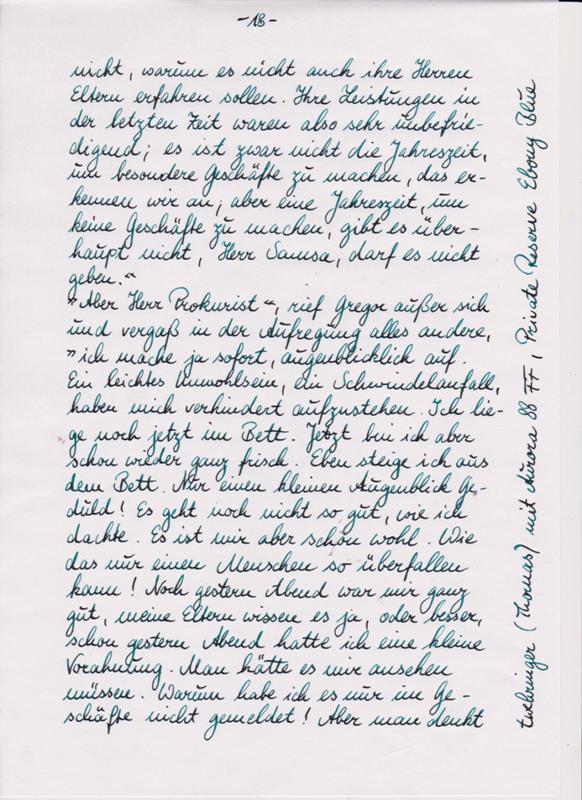 -18-
nicht, warum es nicht auch ihre Herren
Eltern erfahren sollen. Ihre Leistungen in
der letzten Zeit waren also sehr unbefrie-
digend; es ist zwar nicht die Jahreszeit,
um besondere Geschäfte zu machen, das er-
kennen wir an; aber eine Jahreszeit, um
keine Geschäfte zu machen, gibt es über-
haupt nicht, Herr Samsa, darf es nicht
geben."
"Aber Herr Prokurist", rief Gregor außer sich
und vergaß in der Aufregung alles andere,
"ich mache ja sofort, augenblicklich auf.
Ein leichtes Unwohlsein, ein Schwindelanfall,
haben mich verhindert aufzustehen. Ich lie-
ge noch jetzt im Bett. Jetzt bin ich aber
schon wieder ganz frisch. Eben steige ich aus
dem Bett. Nur einen kleinen Augenblick Ge-
duld! Es geht noch nicht so gut, wie ich
dachte. Es ist mir aber schon wohl. Wie
das nur einen Menschen so überfallen
kann! Noch gestern Abend war mir ganz
gut, meine Eltern wissen es ja, oder besser,
schon gestern Abend hatte ich eine kleine
Vorahnung. Man hätte es mir ansehen
müssen. Warum habe ich es nur im Ge-
schäfte nicht gemeldet! Aber man denkt
(Thomas) mit Aurora 88 FF, Private Reserve Ebony Blue